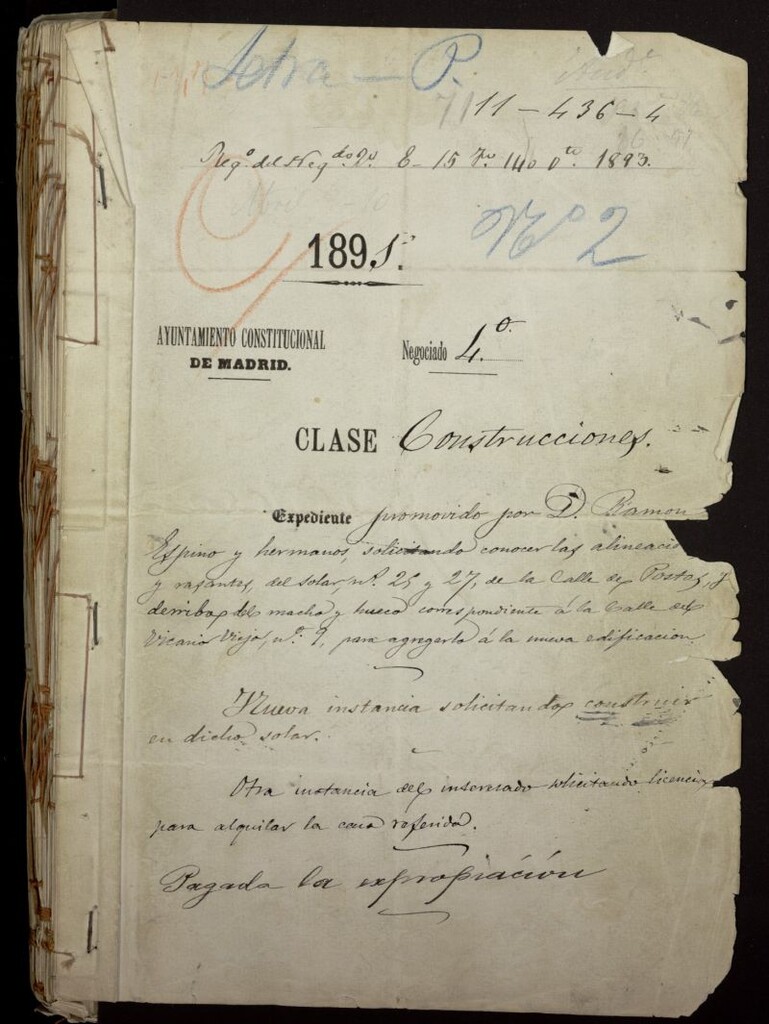 Letra - P.
11-436-4
Reg.º del Neg.do 2.º 8- 15 7.º 140 0.to 1893.
Nº 2
1895.
AYUNTAMIENTO CONSTITUCIONAL
DE MADRID.
Negociado 4.º
CLASE Construcciones.
Expediente promovido por D. Ramon
Espino y hermanos, solicitando conocer las alineacio
y rasantes, del solar, nº. 25 y 27, de la Calle de Postas, y
derribo del macho y hueco correspondiente á la Calle del
Vicario Viejo, nº. 9, para agregarlo á la nueva edificacion
Nueva instancia solicitando construir
en dicho solar.
Otra instancia del interesado solicitando licencia
para alquilar la casa referida.
Pagada la expropiación